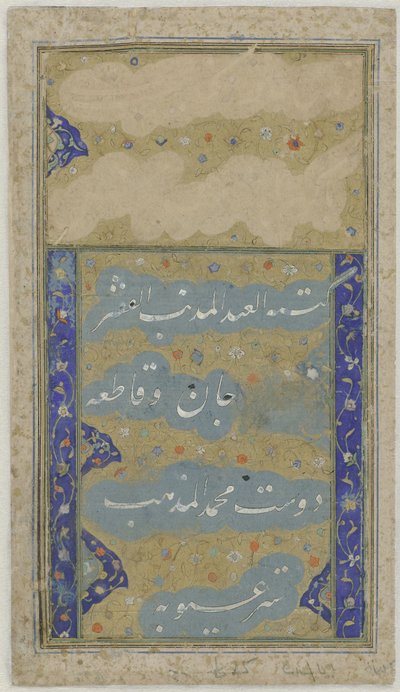 كتبه العبد المذنب الفقير
جان وقاطعه
دوست محمد المذهب
ستر عيوبه